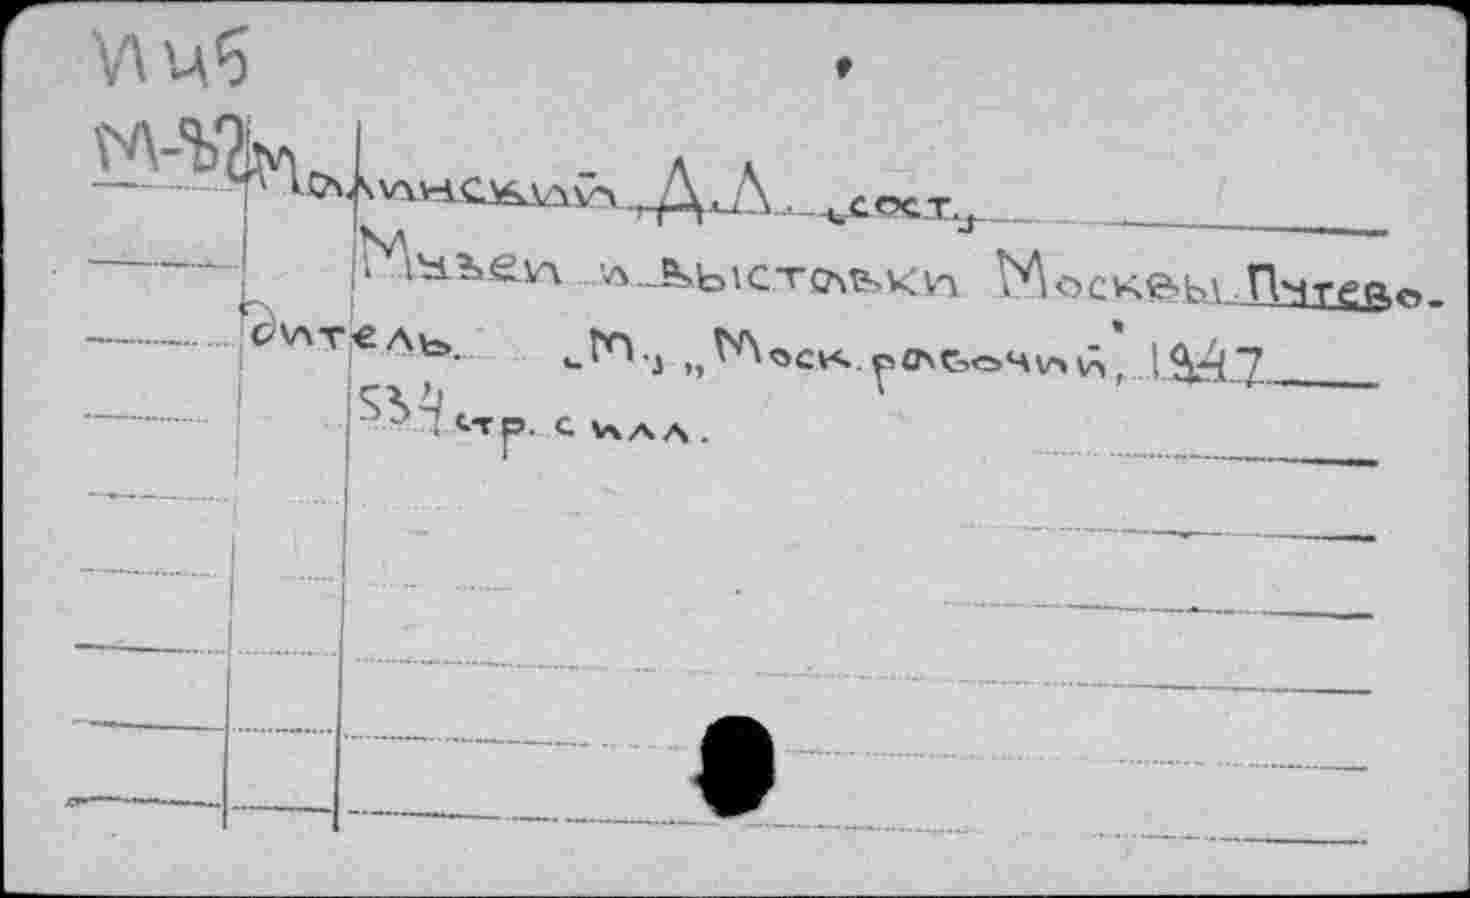 Ицб
М-
Малинский, Д.Д. [сост.]
Музеи и выставки Москвы. Путево-
дитель. [М.], „Моск. рабочий", 1947
534 стр. с илл.